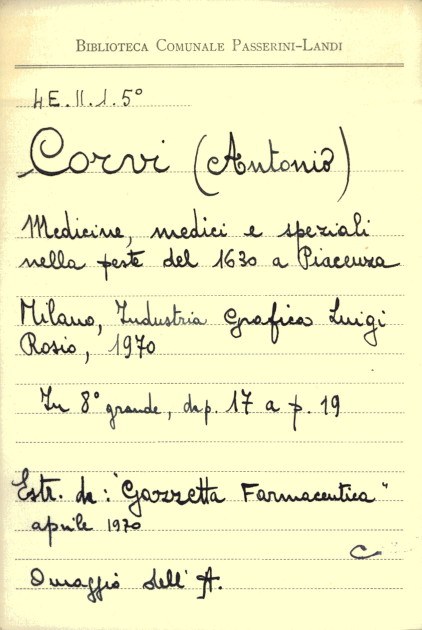 BIBLIOTECA COMUNALE PASSERINI-LANDI
4E.II.1.5°
Corvi (Antonio)
Medicine, medici e speziali
nella peste del 1630 a Piacenza
Milano, Industria Grafica Luigi
Rosio, 1970
In 8° grande, da p. 17 a p. 19
Estr. da: "Gazzetta Farmaceutica"
aprile 1970
C
Omaggio dell'A.